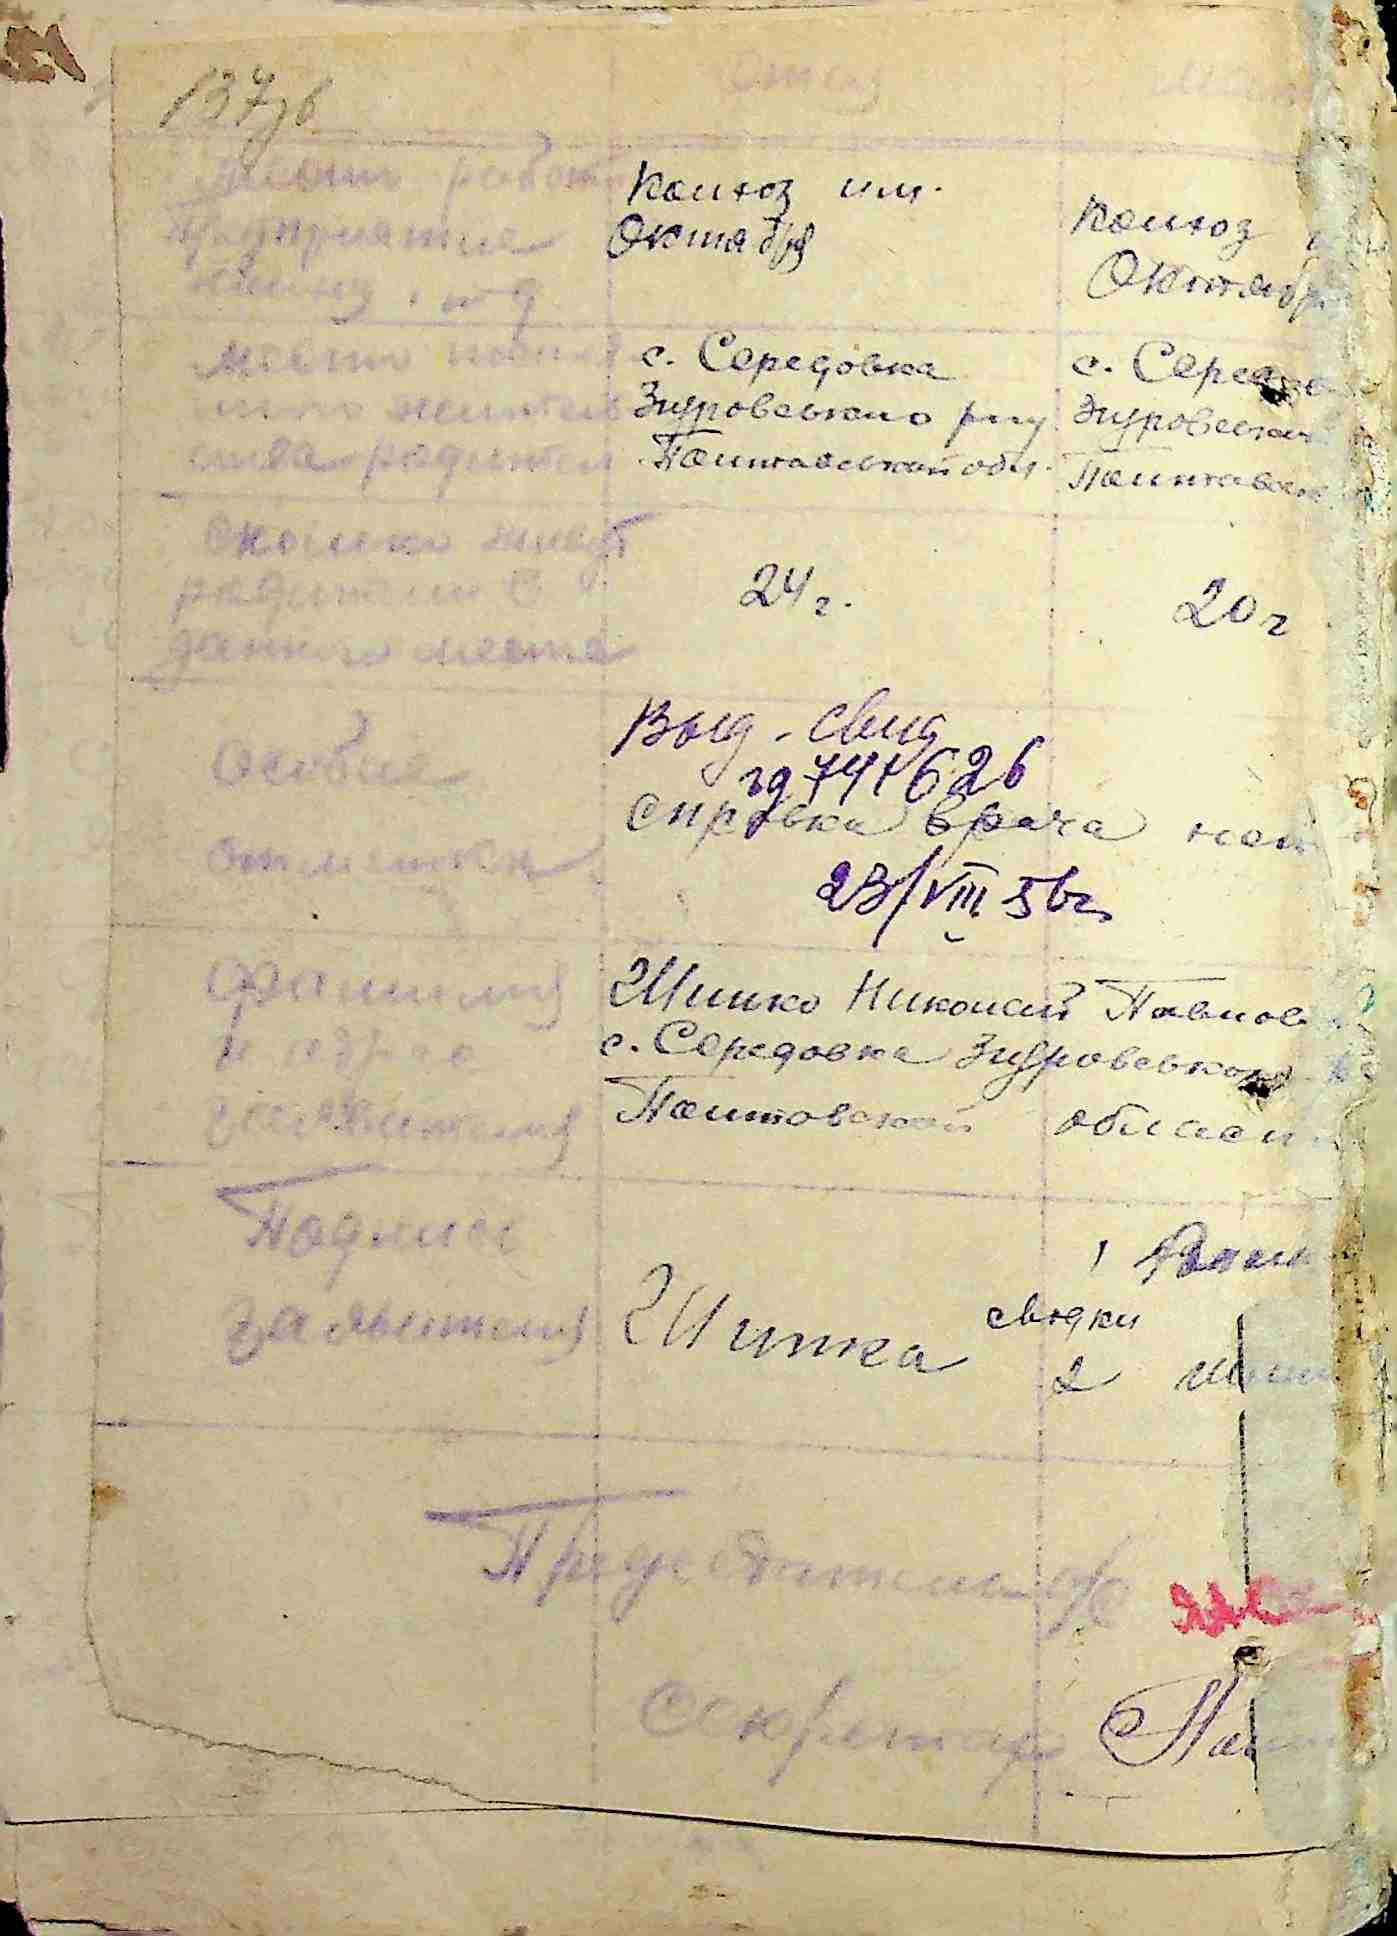 137об
Отец
место работы
предприятие
колхоз и т д
Колхоз им.
Октября
Колхоз
Октябр
место постоя
ного житель
ства родител
с. Середовка
Згуровського р-ну
Полтавськой обл.
с. Середов
Згуровськ
Полтавськ
сколько живут
родители в
данном месте
24 г.
20 г
Особые
отметки
Выд. свид
741626
справка врача нет
23/VIII 56г.
Фамилия
и адрес
заявителя
Шинко Николай Павлов
с. Середовка Згуровського
Полтовской област
Подпись
заявителя
Шинка
сводки
2
Председатель с/с
Секретар